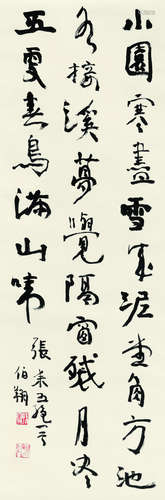 小園寒盡雪成泥堂角方池
水接溪夢覺隔窗殘月尽
五更春鳥滿山啼
張耒
伯翔